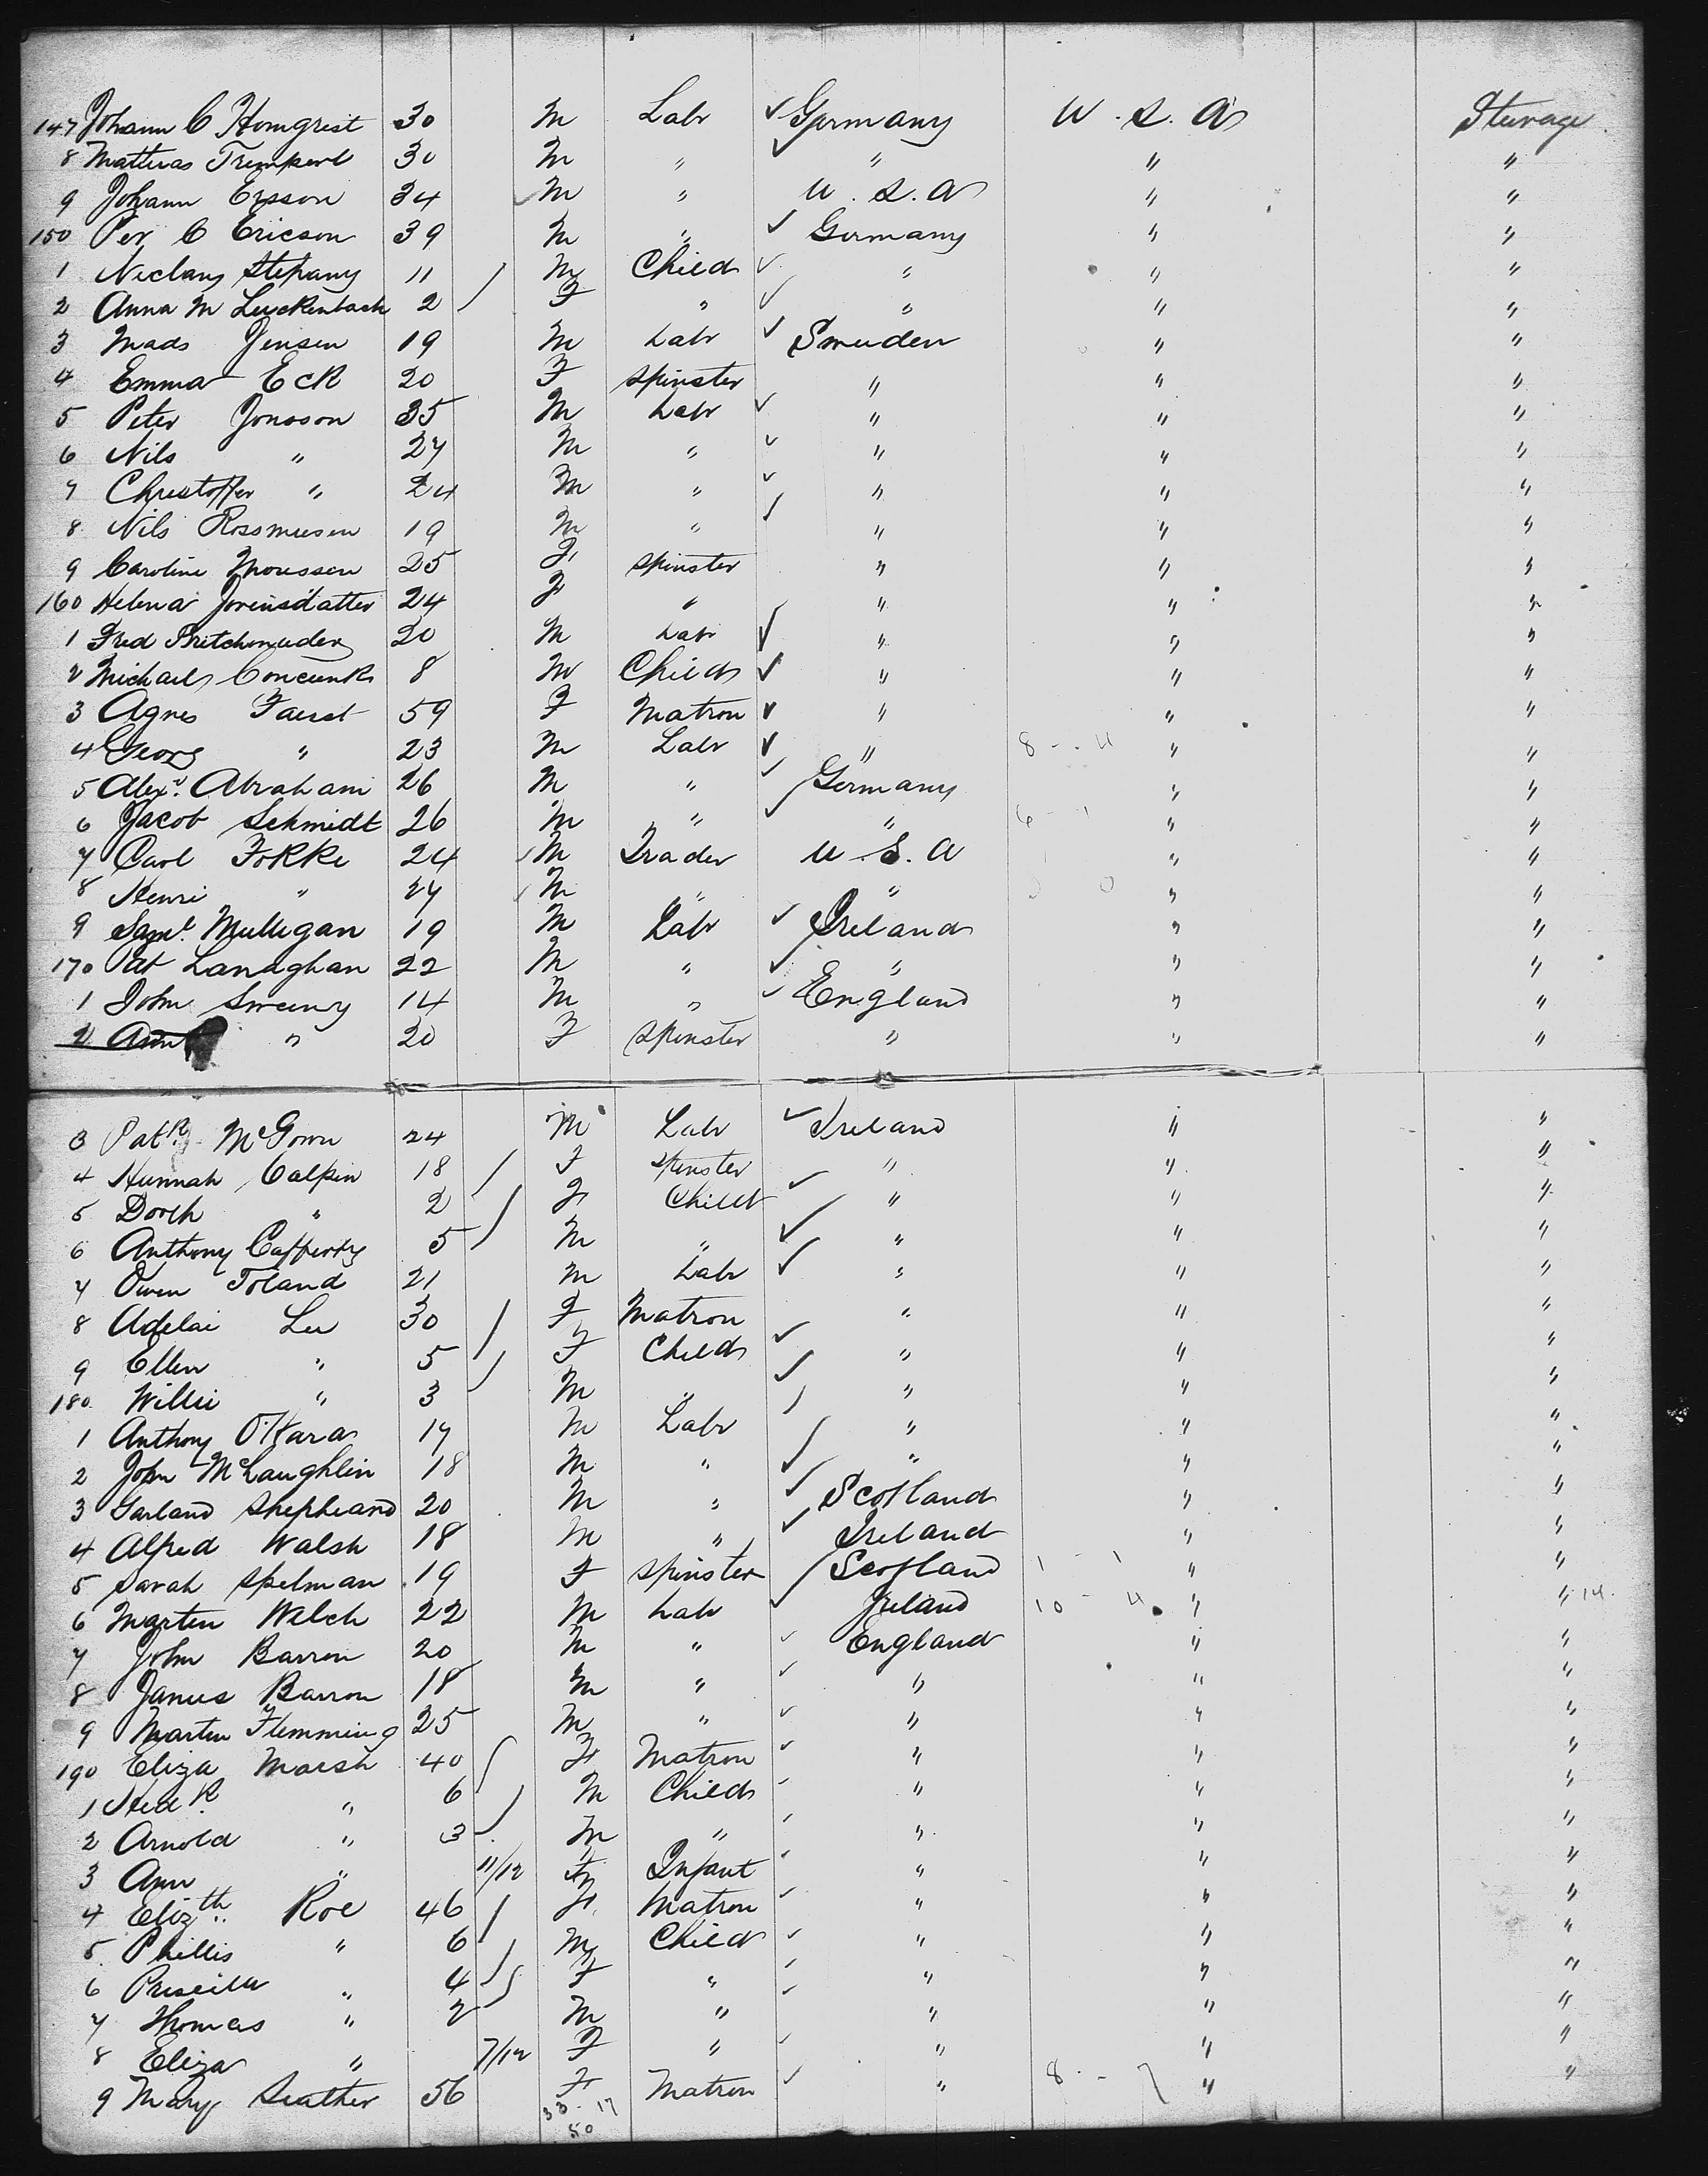 147 Johann C Homgrest 30 M Labr ✓ Germany U. S. A Steerage
8 Mathias Tremperl 30 M " ✓ " " "
9 Johann Ersson 34 ✓ M " U. S. A " "
150 Per C Ericson 39 M " ✓ Germany " "
1 Niclaus Stepany 11 M Child ✓ " " "
2 Anna M Luckenbach 2 F " ✓ " " "
3 Mads Jensen 19 M Labr ✓ Sweden " "
4 Emma Eck 20 F Spinster " " "
5 Peter Jonsson 35 M Labr ✓ " " "
6 Nils " 27 M " ✓ " " "
7 Christoffer " 24 M " ✓ " " "
8 Nils Rossmusen 19 M " ✓ " " "
9 Caroline Moussen 25 F Spinster " " "
160 Helena Jorensdatter 24 F " " " "
1 Fred 20 M Labr ✓ " " "
2 Michael 8 M Child ✓ " " "
3 Agnes Faust 59 F Matron ✓ " " "
4 Georg " 23 M Labr ✓ " 8 - 4 " "
5 Alexr. Abraham 26 M " ✓ Germany " "
6 Jacob Schmidt 26 M " ✓ " 6 - 1 " "
7 Carl Fokke 24 ✓ M Trader U. S. A " "
8 Henri " 27 ✓ M " " " "
9 Saml. Mulligan 19 M Labr ✓ Ireland " "
170 Pat Lanaghan 22 M " ✓ " " "
1 John Sweeny 14 M " ✓ England " "
2 Ann " 20 F Spinster " " "
3 Patk. McGown 24 M Labr ✓ Ireland " "
4 Hannah Calpin 18 F Spinster ✓ " " "
5 Dorth " 2 F Child ✓ " " "
6 Anthony Cafferty 5 M " ✓ " " "
7 Owen Toland 21 M Labr ✓ " " "
8 Adelai Lee 30 F Matron " " "
9 Ellen " 5 F Child ✓ " " "
180 Willie " 3 M " ✓ " " "
1 Anthony O'Hara 17 M Labr ✓ " " "
2 John McLaughlin 18 M " ✓ " " "
3 Garland Shepheard 20 M " ✓ Scotland " "
4 Alfred Walsh 18 M " ✓ Ireland " "
5 Sarah Spelman 19 F Spinster ✓ Scotland 1 - 1 " "
6 Marten Welch 22 M Labr ✓ Ireland 10 - 4 " " 14
7 John Barron 20 M " ✓ England " "
8 James Barron 18 M " ✓ " " "
9 Marten Flemming 25 M " ✓ " " "
190 Eliza Marsh 40 F Matron ✓ " " "
1 " 6 M Child ✓ " " "
2 Arnold " 3 M " ✓ " " "
3 Ann " 11/12 F Infant ✓ " " "
4 Elizth. Roe 46 F Matron ✓ " " "
5 Phillis " 6 M Child ✓ " " "
6 Priscilla " 4 F " ✓ " " "
7 Thomas " 2 M " ✓ " " "
8 Eliza " 7/12 F " ✓ " " "
9 Mary Seather 56 F Matron ✓ " 8 - 7 " "
33 - 17
50